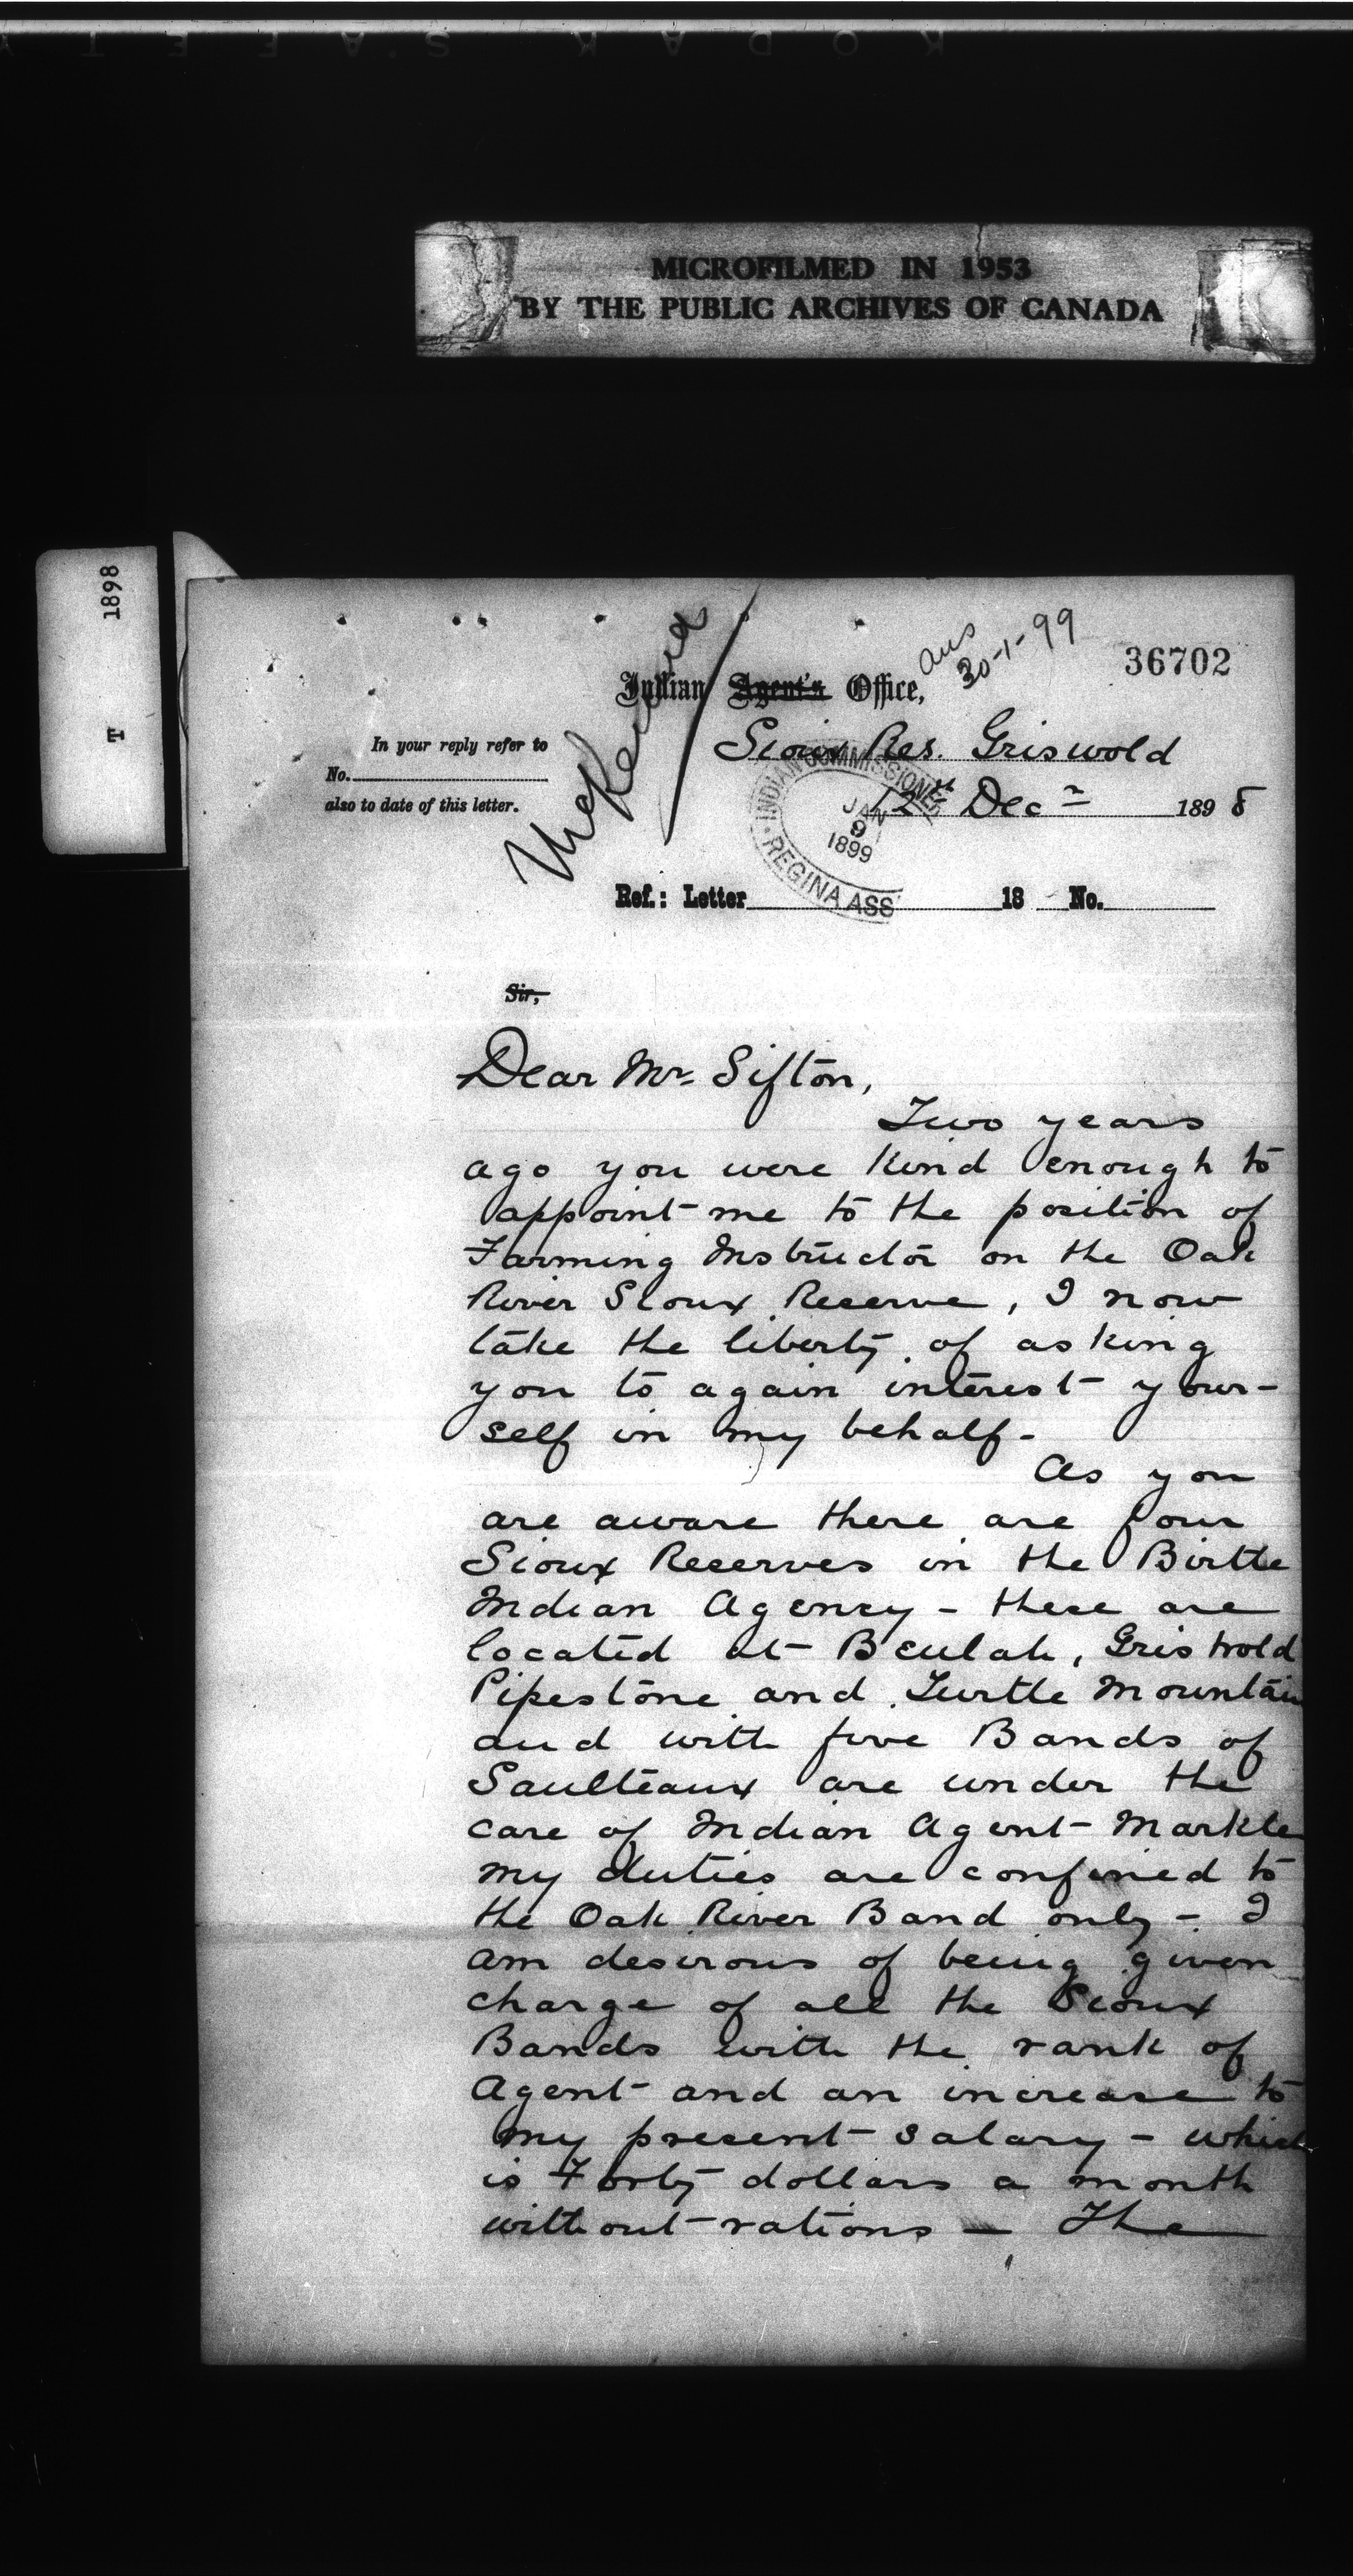 KODAK SAFETY
MICROFILMED IN 1953
BY THE PUBLIC ARCHIVES OF CANADA
T 1898
ans
30-1-99
36702
McKenna
Indian Agent's Office,
Sioux Res. Griswold
In your reply refer to
No.
also to date of this letter.
12th Decr 1898
INDIAN COMMISSIONER
JAN
9
1899
REGINA ASS
Ref.: Letter 18 No.
Sir,
Dear Mr Sifton,
Two years
ago you were kind enough to
appoint me to the position of
Farming Instructor on the Oak
River Sioux Reserve, I now
take the liberty of asking
you to again interest your-
self in my behalf -
As you
are aware there are four
Sioux Reserves in the Birtle
Indian Agency - these are
located at Beulah, Griswold
Pipestone and Turtle Mountain
and with five Bands of
Saulteaux are under the
care of Indian Agent Markle
my duties are confined to
the Oak River Band only - I
am desirous of being given
charge of all the Sioux
Bands with the rank of
Agent and an increase to
my present salary - which
is Forty dollars a month
without rations - The